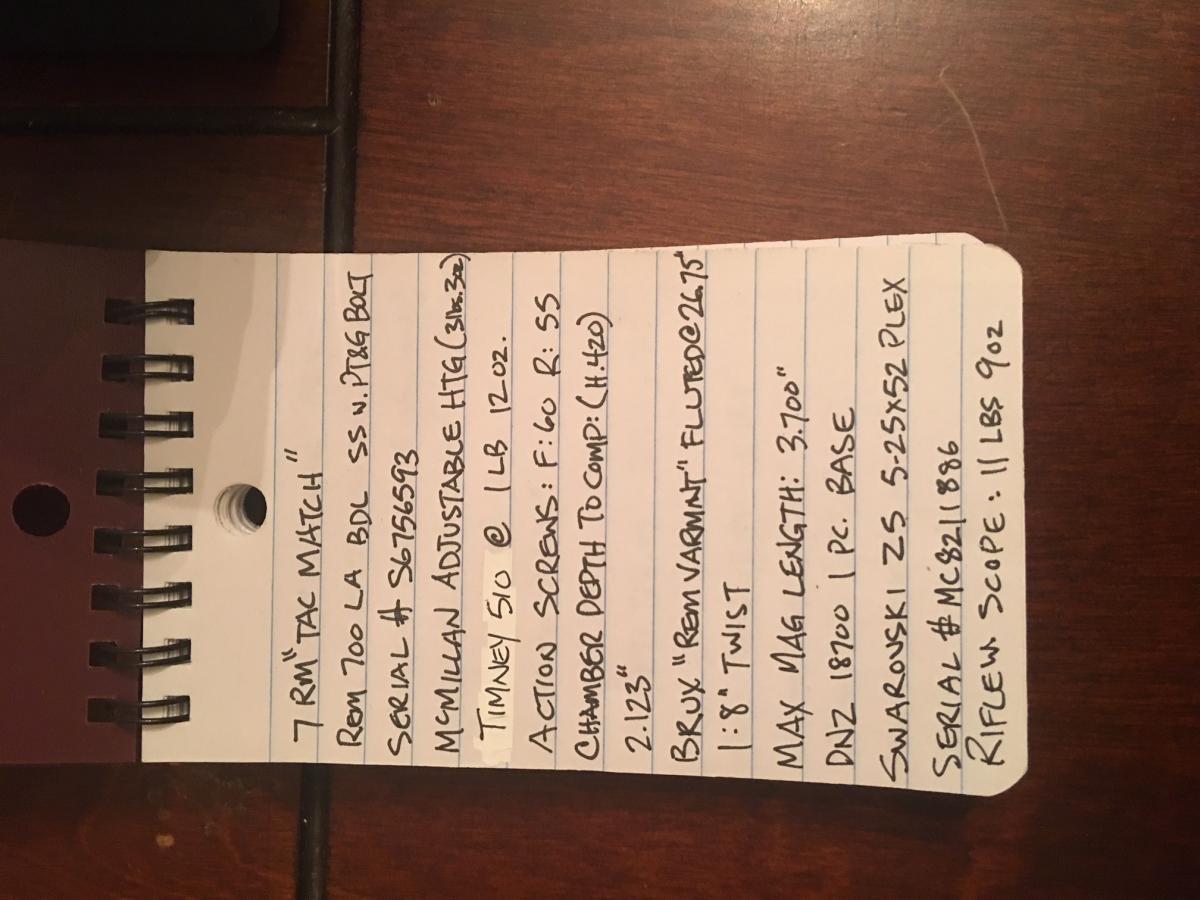 7 RM "TAC MATCH"
REM 700 LA BDL SS W. PT&G BOLT
SERIAL # S6756593
MCMILLAN ADJUSTABLE HTG (3lbs. 3oz)
TIMNEY 510 @ 1 LB 12 OZ.
ACTION SCREWS: F: 60 R: 55
CHAMBER DEPTH TO COMP: (H.420)
2.123"
BRUX "REM VARMINT" FLUTED @ 26.75"
1:8" TWIST
MAX MAG LENGTH: 3.700"
DNZ 18700 1 PC. BASE
SWAROVSKI Z5 5-25X52 PLEX
SERIAL # MC8211886
RIFLE W. SCOPE: 11 LBS 9 OZ